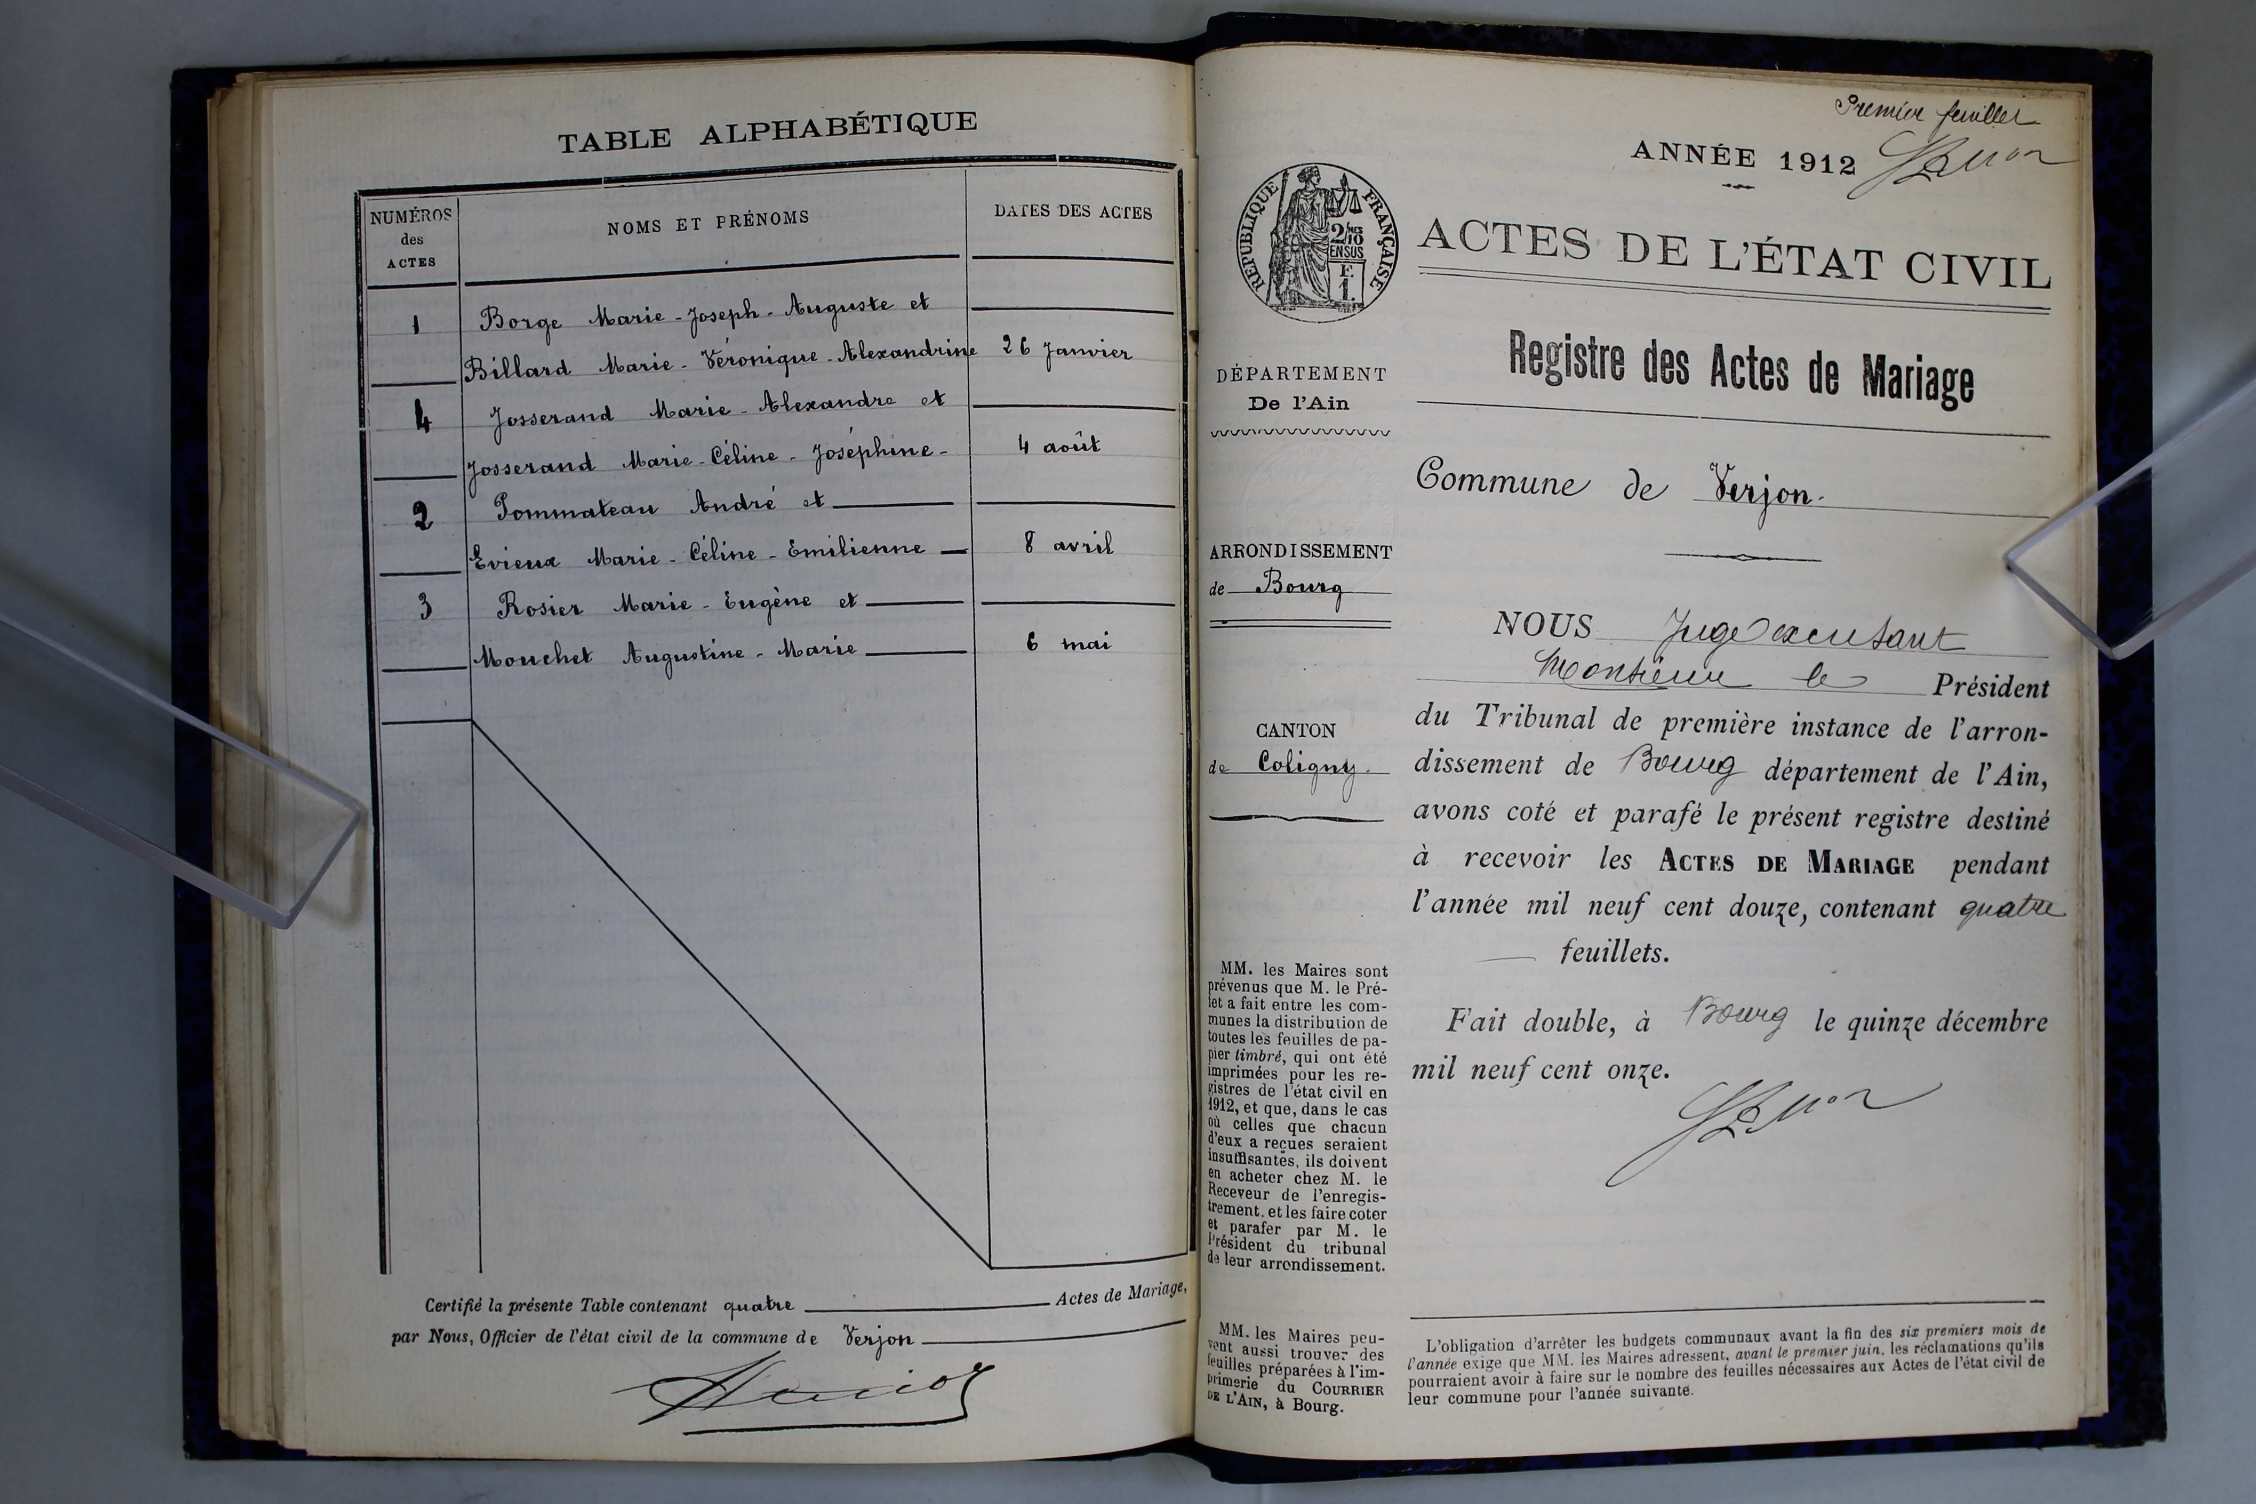 TABLE ALPHABÉTIQUE
NUMÉROS
des
ACTES
NOMS ET PRÉNOMS
DATES DES ACTES
1 Borge Marie - Joseph - Auguste et
Billard Marie - Véronique - Alexandrine 26 Janvier
4 Josserand Marie - Alexandre et
Josserand Marie - Céline - Joséphine - 4 août
2 Pommateau André et
Evieux Marie - Céline - Emilienne 8 avril
3 Rosier Marie - Eugène et
Mouchet Augustine - Marie 6 mai
Certifié la présente Table contenant quatre Actes de Mariage,
par Nous, Officier de l'état civil de la commune de Verjon
Premier feuillet
ANNÉE 1912
RÉPUBLIQUE FRANÇAISE
2/10
EN SUS
F.
1.
ACTES DE L'ÉTAT CIVIL
Registre des Actes de Mariage
DÉPARTEMENT
De l'Ain
Commune de Verjon.
ARRONDISSEMENT
de Bourg
CANTON
de Coligny.
NOUS Juge excusant
Monsieur le Président
du Tribunal de première instance de l'arron-
dissement de Bourg département de l'Ain,
avons coté et parafé le présent registre destiné
à recevoir les ACTES DE MARIAGE pendant
l'année mil neuf cent douze, contenant quatre
feuillets.
Fait double, à Bourg le quinze décembre
mil neuf cent onze.
MM. les Maires sont
prévenus que M. le Pré-
fet a fait entre les com-
munes la distribution de
toutes les feuilles de pa-
pier timbré, qui ont été
imprimées pour les re-
gistres de l'état civil en
1912, et que, dans le cas
où celles que chacun
d'eux a reçues seraient
insuffisantes, ils doivent
en acheter chez M. le
Receveur de l'enregis-
trement, et les faire coter
et parafer par M. le
Président du tribunal
de leur arrondissement.
MM. les Maires peu-
vent aussi trouver des
feuilles préparées à l'im-
primerie du COURRIER
DE L'AIN, à Bourg.
L'obligation d'arrêter les budgets communaux avant la fin des six premiers mois de
l'année exige que MM. les Maires adressent, avant le premier juin, les réclamations qu'ils
pourraient avoir à faire sur le nombre des feuilles nécessaires aux Actes de l'état civil de
leur commune pour l'année suivante.